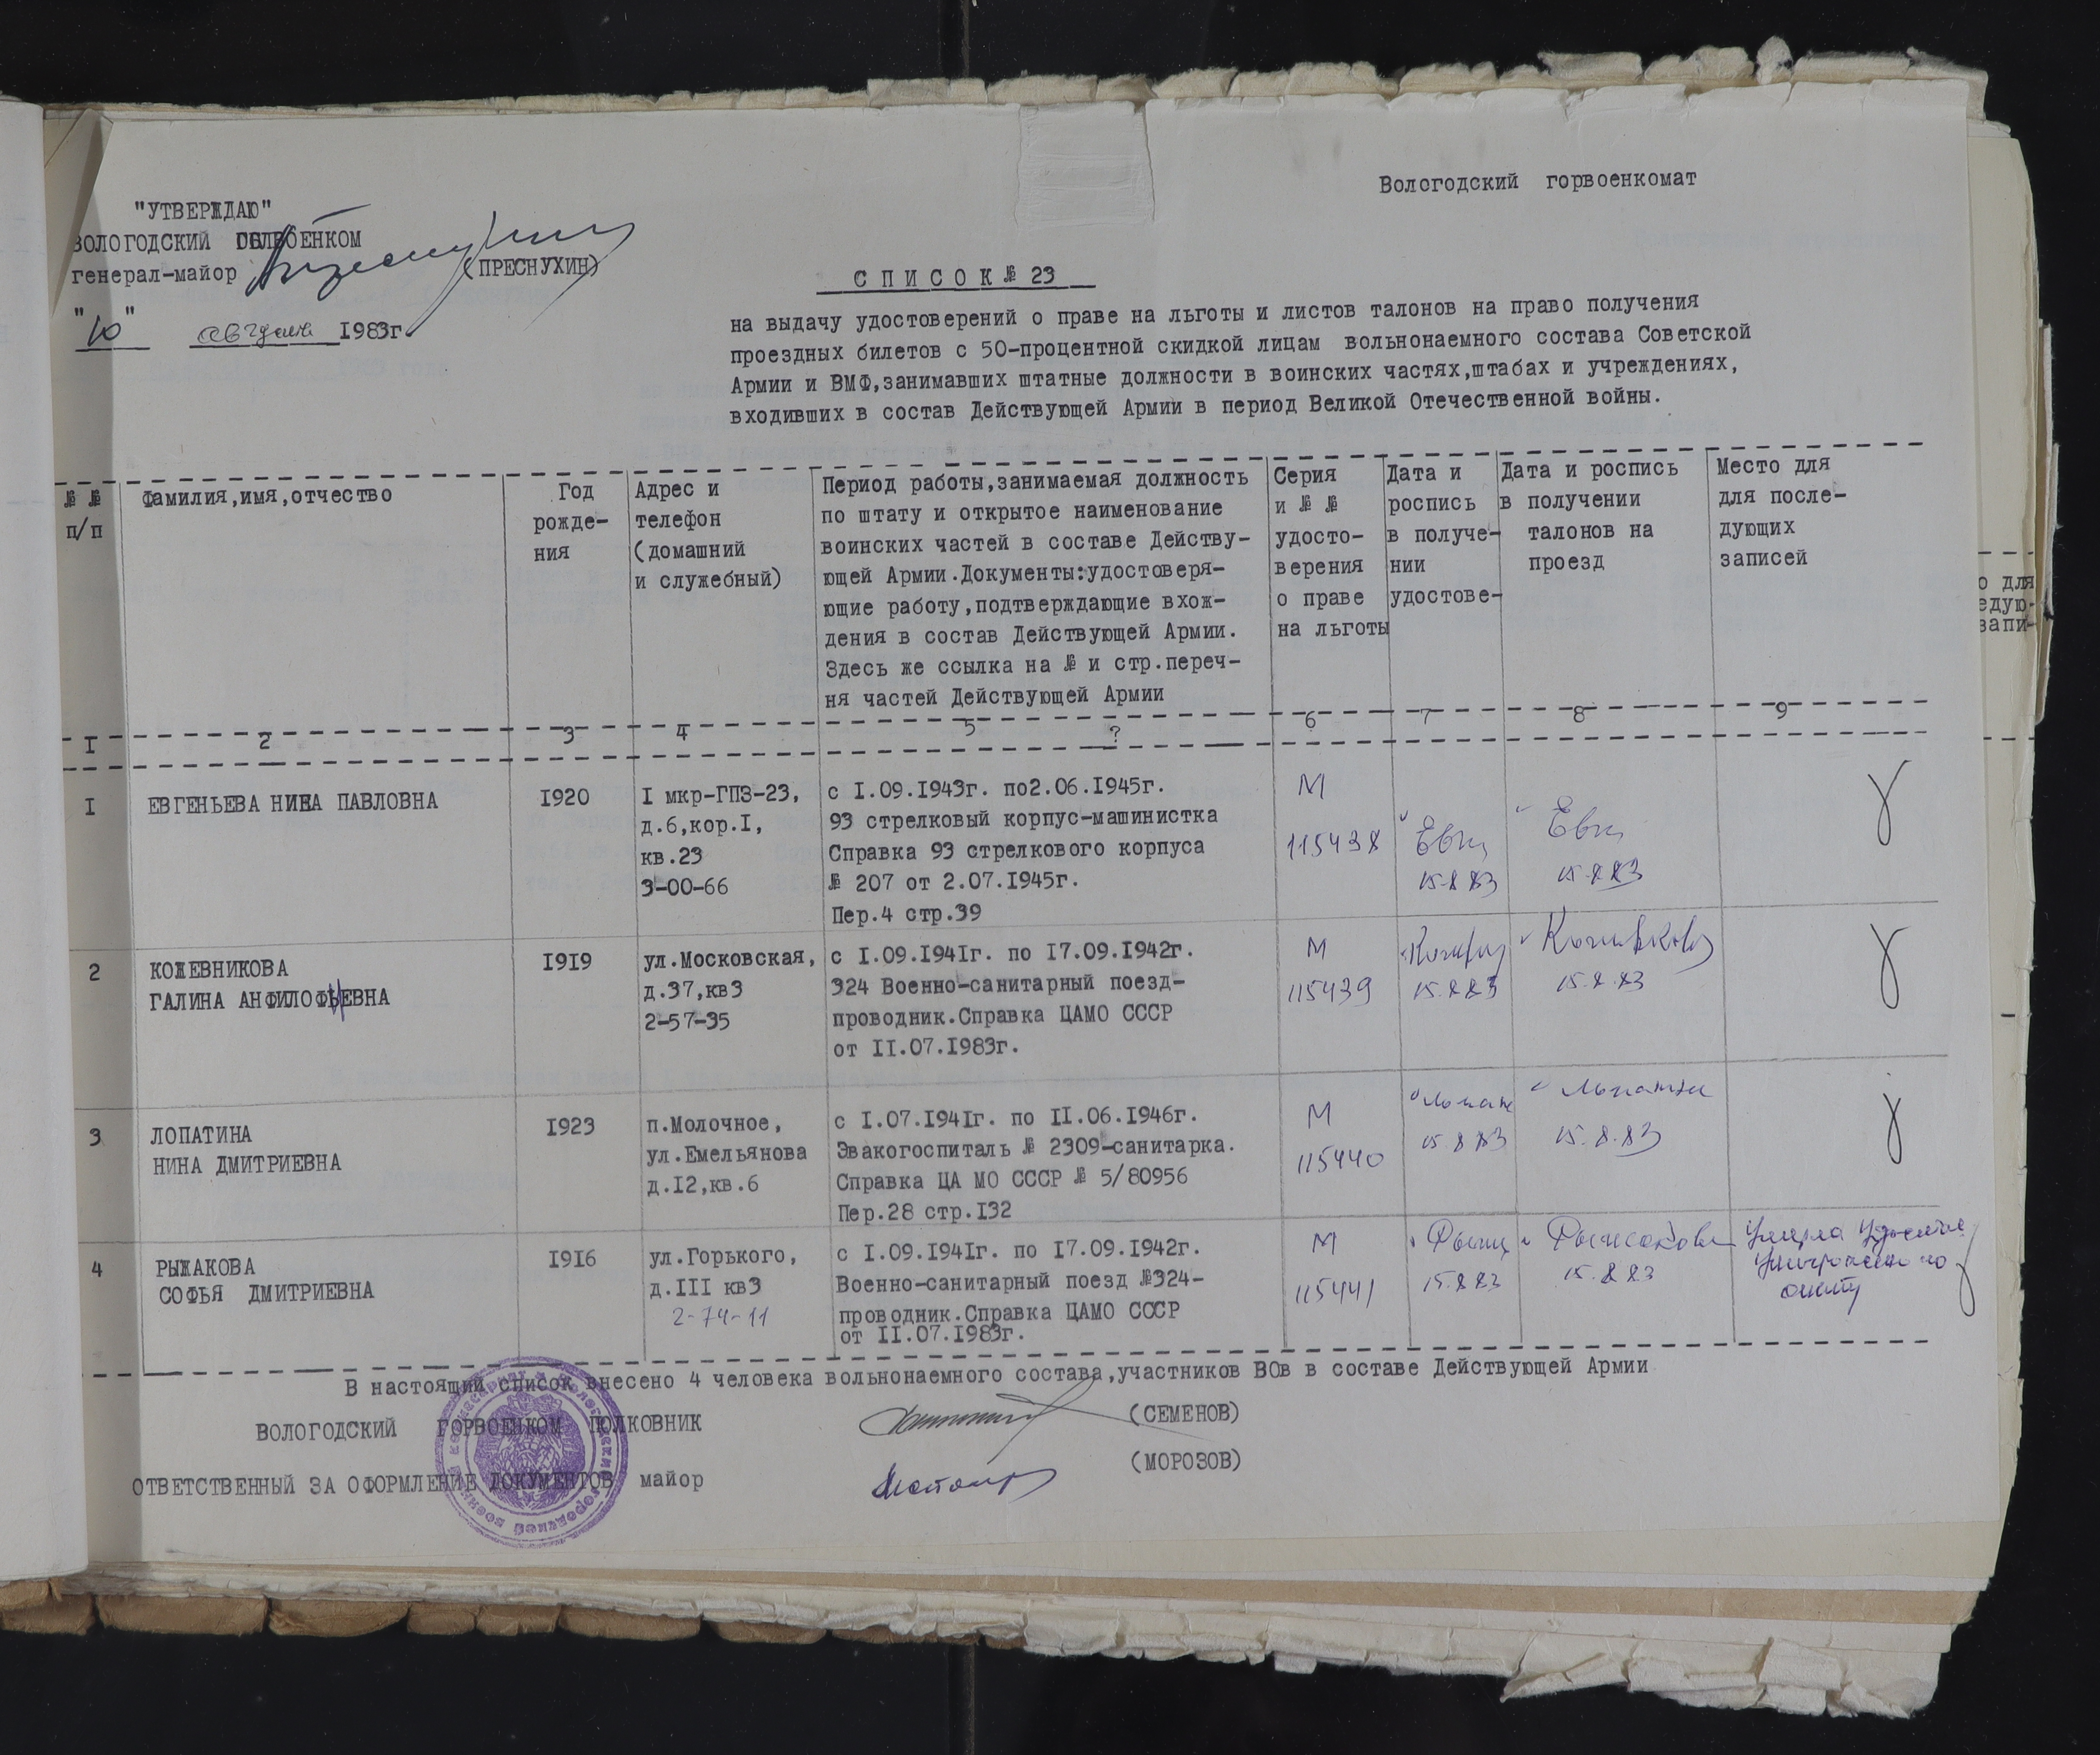 Вологодский горвоенкомат
"УТВЕРЖДАЮ"
ВОЛОГОДСКИЙ ОБЛВОЕНКОМ
генерал-майор (ПРЕСНУХИН)
"10" августа 1983г.
СПИСОК № 23
на выдачу удостоверений о праве на льготы и листов талонов на право получения
проездных билетов с 50-процентной скидкой лицам вольнонаемного состава Советской
Армии и ВМФ,занимавших штатные должности в воинских частях,штабах и учреждениях,
входивших в состав Действующей Армии в период Великой Отечественной войны.
№ № п/п
Фамилия,имя,отчество
Год
рожде-
ния
Адрес и
телефон
(домашний
и служебный)
Период работы,занимаемая должность
по штату и открытое наименование
воинских частей в составе Действу-
ющей Армии.Документы:удостоверя-
ющие работу,подтверждающие вхож-
дения в состав Действующей Армии.
Здесь же ссылка на № и стр.переч-
ня частей Действующей Армии
Серия
и № №
удосто-
верения
о праве
на льготы
Дата и
роспись
в получе-
нии
удостове-
Дата и роспись
в получении
талонов на
проезд
Место для
для после-
дующих
записей
I 2 3 4 5 ? 6 7 8 9
I
ЕВГЕНЬЕВА НИНА ПАВЛОВНА
I920
I мкр-ГПЗ-23,
д.6,кор.I,
кв.23
3-00-66
с I.09.I943г. по2.06.I945г.
93 стрелковый корпус-машинистка
Справка 93 стрелкового корпуса
№ 207 от 2.07.I945г.
Пер.4 стр.39
М
115438
15.8.83
15.8.83
2
КОЖЕВНИКОВА
ГАЛИНА АНФИЛОФИЕВНА
I9I9
ул.Московская,
д.37,кв3
2-57-35
с I.09.I94Iг. по I7.09.I942г.
324 Военно-санитарный поезд-
проводник.Справка ЦАМО СССР
от II.07.I983г.
М
115439
15.8.83
15.8.83
3
ЛОПАТИНА
НИНА ДМИТРИЕВНА
I923
п.Молочное,
ул.Емельянова
д.I2,кв.6
с I.07.I94Iг. по II.06.I946г.
Эвакогоспиталь № 2309-санитарка.
Справка ЦА МО СССР № 5/80956
Пер.28 стр.I32
М
115440
15.8.83
Лопатина
15.8.83
4
РЫЖАКОВА
СОФЬЯ ДМИТРИЕВНА
I9I6
ул.Горького,
д.III кв3
2-74-11
с I.09.I94Iг. по I7.09.I942г.
Военно-санитарный поезд №324-
проводник.Справка ЦАМО СССР
от II.07.I983г.
М
115441
15.8.83
Рыжакова
15.8.83
Умерла
уничтожено по
акту
В настоящий список внесено 4 человека вольнонаемного состава,участников ВОв в составе Действующей Армии
ВОЛОГОДСКИЙ ГОРВОЕНКОМ ПОЛКОВНИК (СЕМЕНОВ)
ОТВЕТСТВЕННЫЙ ЗА ОФОРМЛЕНИЕ ДОКУМЕНТОВ майор (МОРОЗОВ)
о для
едую-
запи-